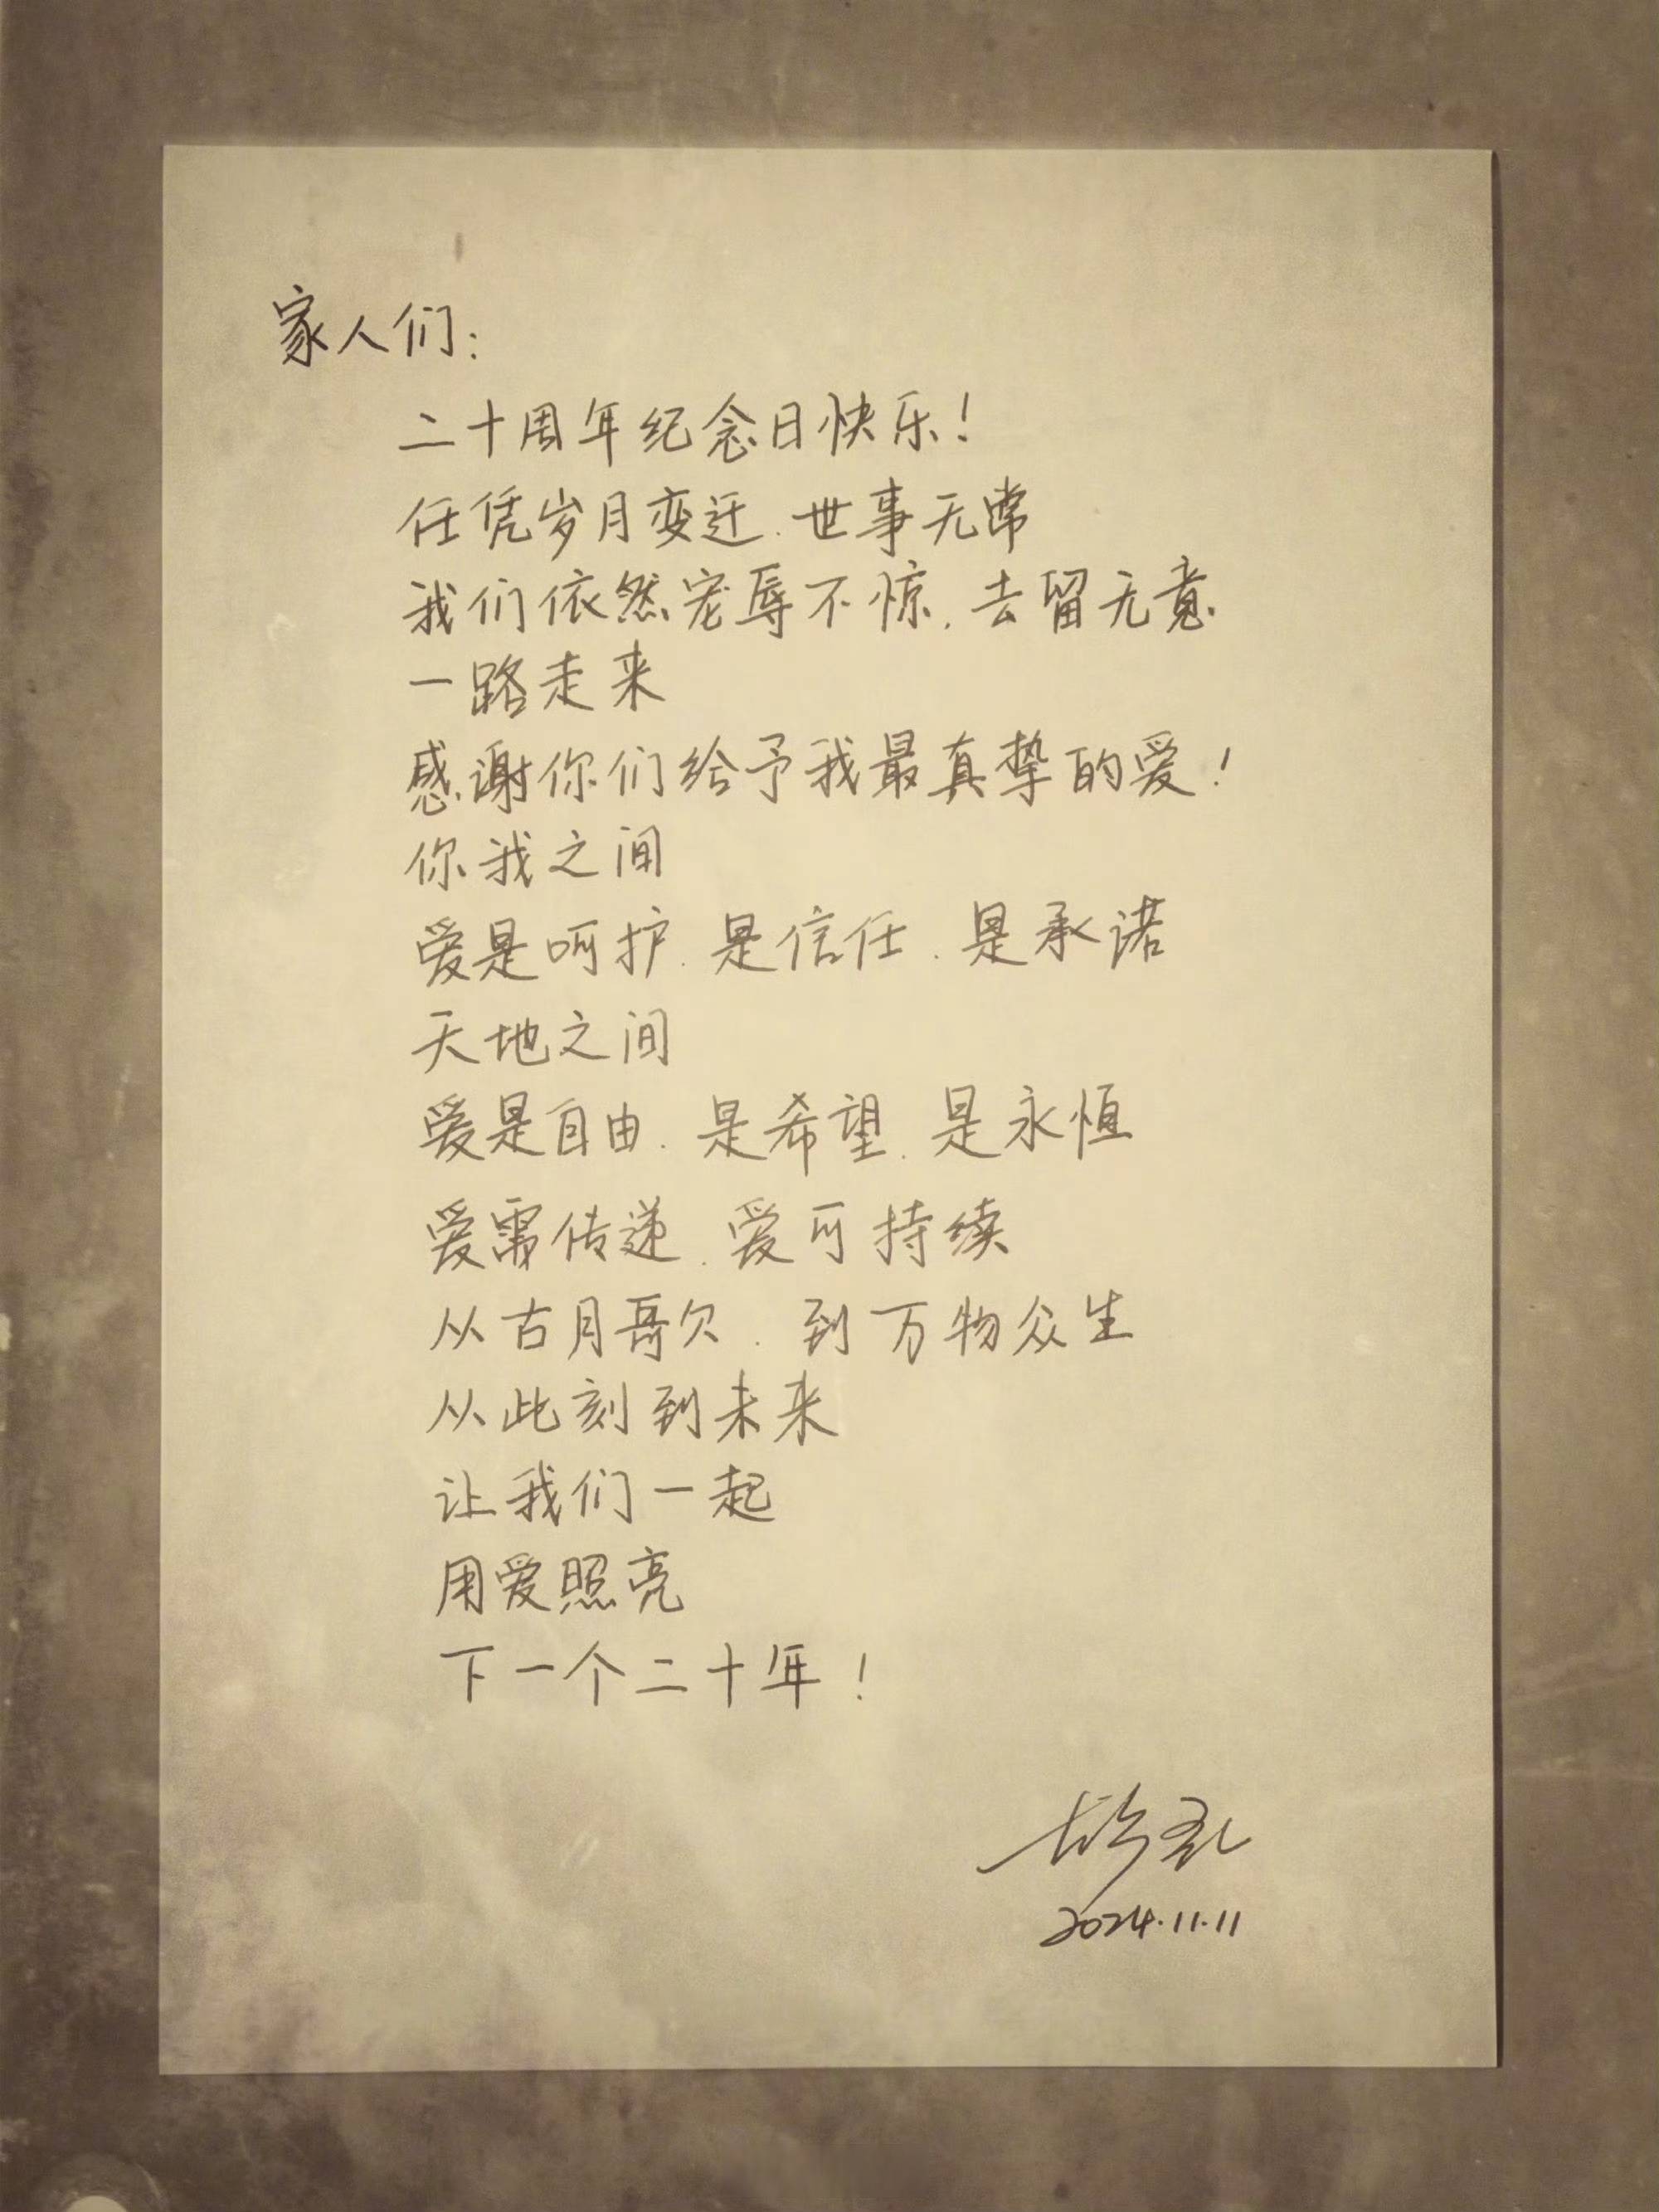 家人们:
二十周年纪念日快乐!
任凭岁月变迁.世事无常
我们依然宠辱不惊.去留无意
一路走来
感谢你们给予我最真挚的爱!
你我之间
爱是呵护.是信任.是承诺
天地之间
爱是自由.是希望.是永恒
爱需传递.爱可持续
从古月哥欠.到万物众生
从此刻到未来
让我们一起
用爱照亮
下一个二十年!
2024.11.11